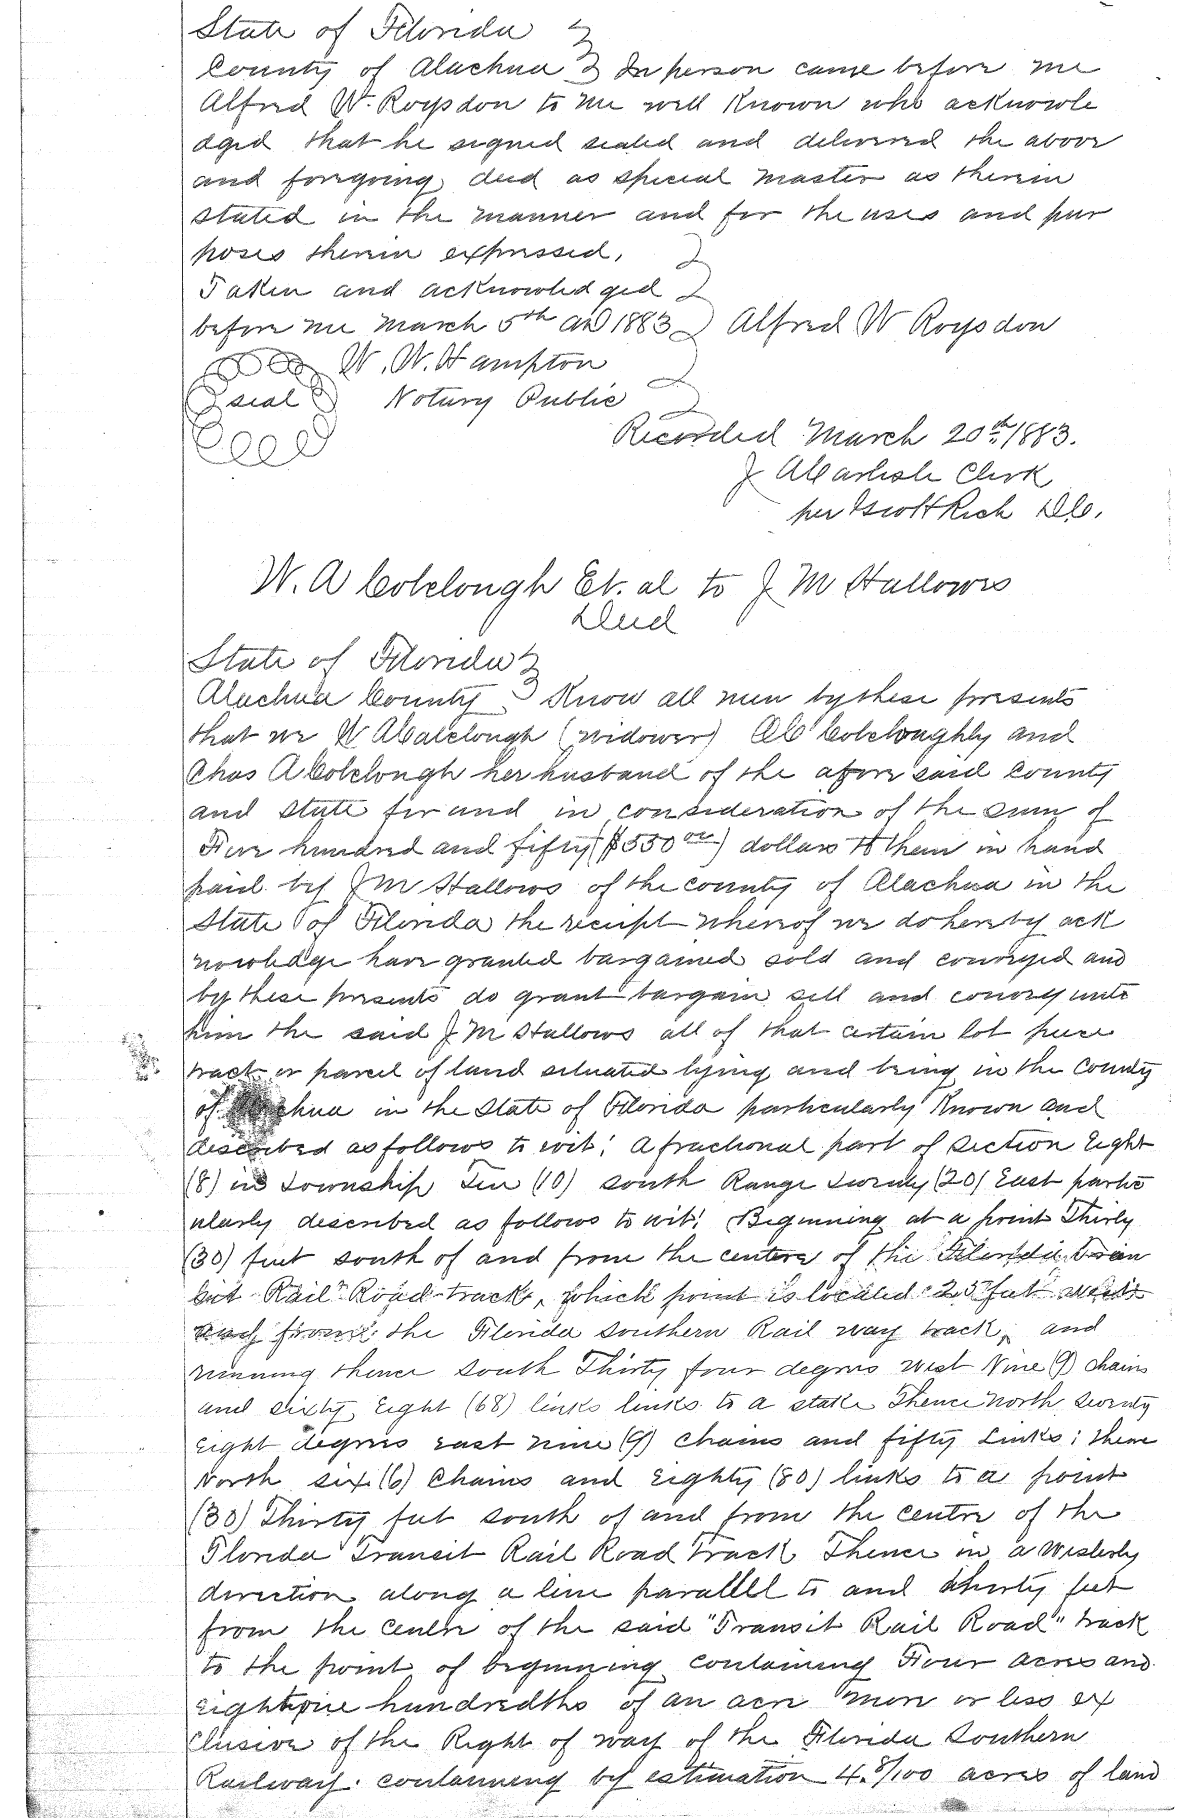 State of Florida
County of Alachua In person came before me
Alfred W. Roysdon to me well Known who acknowle
dged that he signed sealed and delivered the above
and foregoing deed as special master as therein
stated in the manner and for the uses and pur
poses therein expressed.
Taken and acknowledged
before me March 5th AD 1883 Alfred W Roysdon
W. W. Hampton
seal Notary Public
Recorded March 20th 1883.
J A Carlisle Clerk
per Rich D.C.
W. A Colclough Et. al to J M Hallowes
Deed
State of Florida
Alachua County Know all men by these presents
that we W A Calclough (widower) Colcloughly and
Chas A Colclough her husband of the afore said County
and state for and in consideration of the sum of
Five hundred and fifty ($550 00) dollars to them in hand
paid by J M Hallows of the county of Alachua in the
State of Florida the receipt whereof we do hereby ack
nowledge have granted bargained sold and conveyed and
by these presents do grant bargain sell and convey unto
him the said J M Hallows all of that certain lot piece
track or parcel of land situated lying and being in the County
of chua in the State of Florida particularly Known and
described as follows to wit: A fractional part of section Eight
(8) in Township Ten (10) south Range Twenty (20) East partic
ularly described as follows to wit: Beginning at a point Thirty
(30) feet south of and from the centre of the Florida Tran
sit Rail Road track, which point is located 25 feet west
from the Florida Southern Rail way track, and
running thence south Thirty four degrees west Nine (9) chains
and sixty Eight (68) links links to a stake Thence North seventy
Eight degrees east nine (9) chains and fifty Links; thence
North six (6) Chains and Eighty (80) links to a point
(30) Thirty feet south of and from the centre of the
Florida Transit Rail Road Track Thence in a Westerly
direction along a line parallel to and thirty feet
from the centre of the said "Transit Rail Road" track
to the point of beginning containing Four acres and
hundredths of an acre more or less ex
clusive of the Right of way of the Florida Southern
Railway. containing by estimation 4. 8/100 acres of land